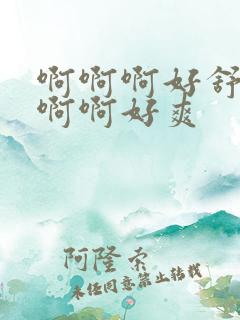 啊啊啊好舒
啊啊好爽
阿隆索
未经同意禁止转载